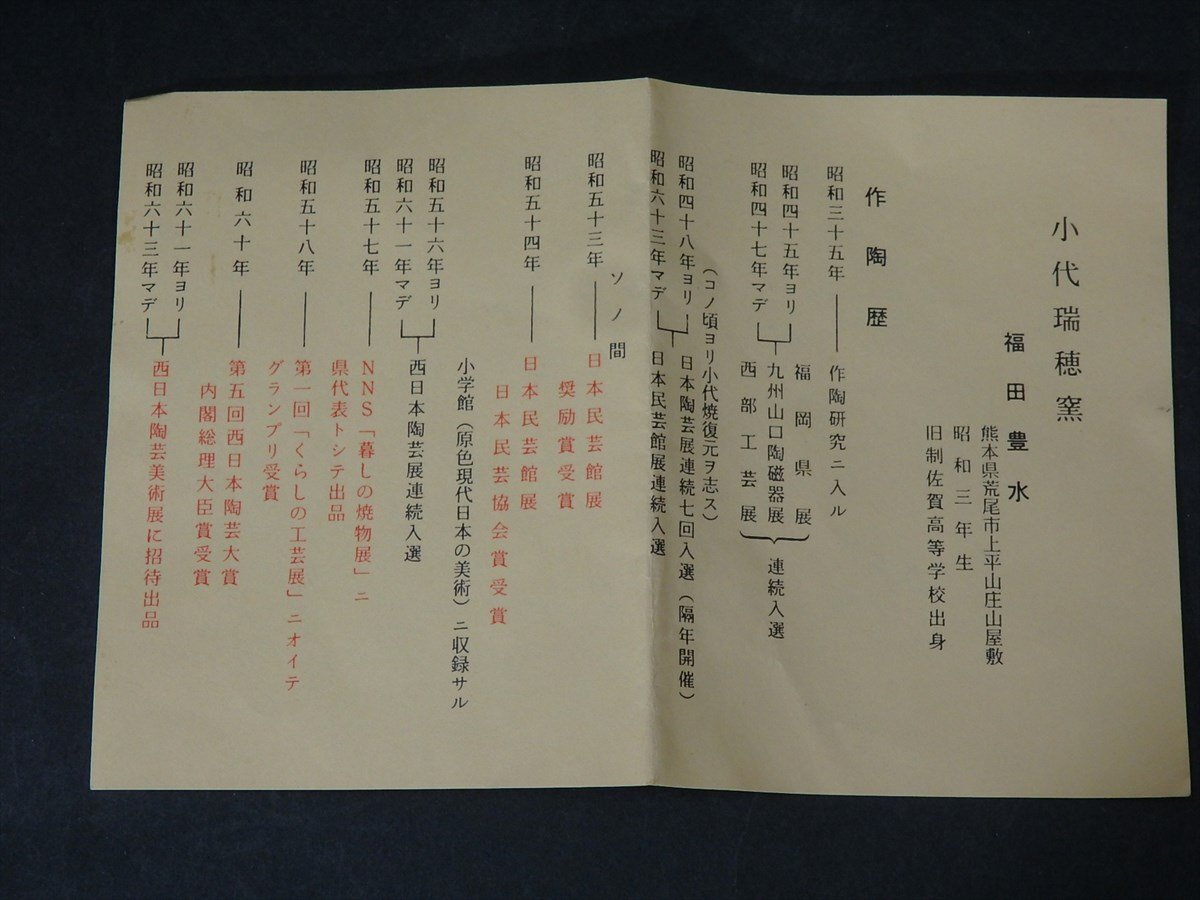 小代瑞穂窯
福田豊水
熊本県荒尾市上平山庄山屋敷
昭和三年生
旧制佐賀高等学校出身
作陶歴
昭和三十五年 作陶研究ニ入ル
昭和四十五年ヨリ
昭和四十七年マデ
福岡県展
九州山口陶磁器展
西部工芸展
連続入選
(コノ頃ヨリ小代焼復元ヲ志ス)
昭和四十八年ヨリ
昭和六十三年マデ
日本陶芸展連続七回入選(隔年開催)
日本民芸館展連続入選
ソノ間
昭和五十三年 日本民芸館展
奨励賞受賞
昭和五十四年 日本民芸館展
日本民芸協会賞受賞
小学館(原色現代日本の美術)ニ収録サル
昭和五十六年ヨリ
昭和六十一年マデ
西日本陶芸展連続入選
昭和五十七年 NNS「暮しの焼物展」ニ
県代表トシテ出品
昭和五十八年 第一回「くらしの工芸展」ニオイテ
グランプリ受賞
昭和六十年 第五回西日本陶芸大賞
内閣総理大臣賞受賞
昭和六十一年ヨリ
昭和六十三年マデ
西日本陶芸美術展に招待出品